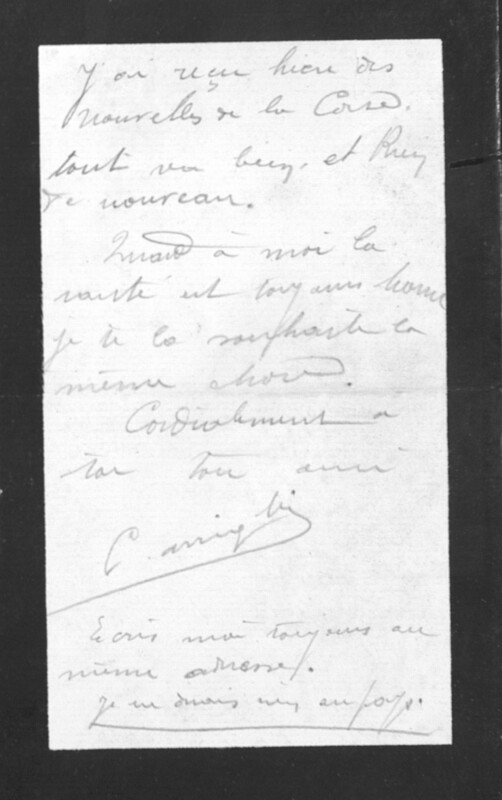 J'ai reçu hier des
nouvelles de la Corse.
tout va bien. et Rien
de nouveau.
Quand à moi la
santé est toujours bonne
je te la souhaite la
même chose.
Cordialement à
toi ton ami
Arrighi
Ecris moi toujours au
même adresse.
je ne dirais rien au pays.